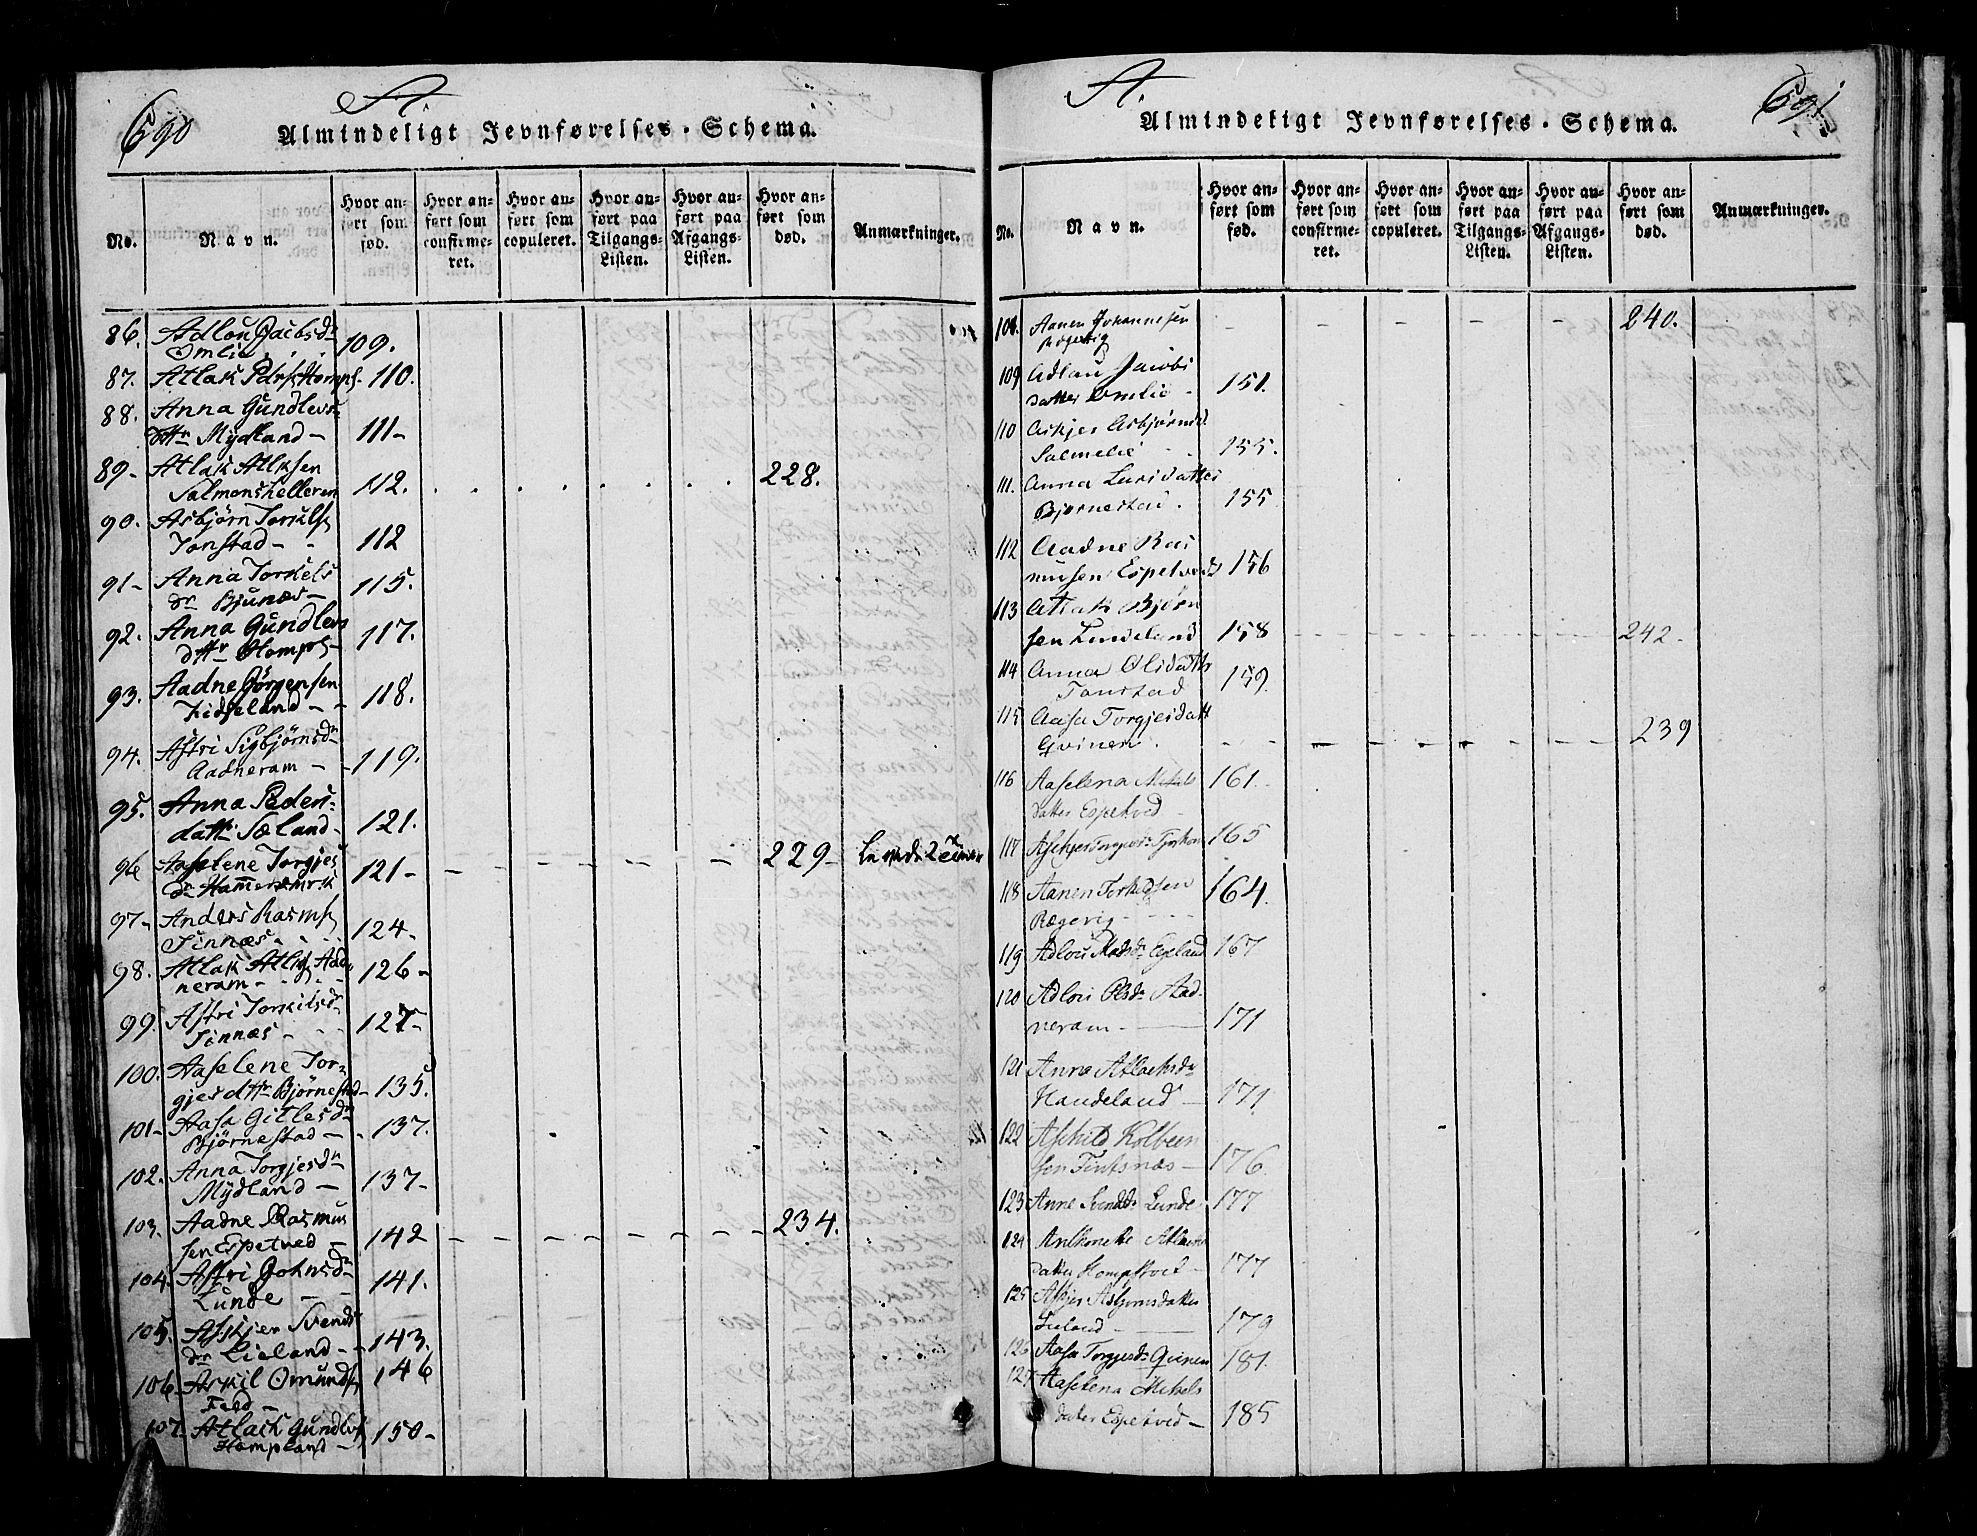 690
A.
Almindeligt Jevnførelses-Schema.
No.
Navn.
Hvor anført som fød.
Hvor anført som confirmeret.
Hvor anført som copuleret.
Hvor anført paa Tilgangs-Listen.
Hvor anført paa Afgangs-Listen.
Hvor anført som død.
Anmærkninger.
86. Adlou Jacobsdr
Omlie 109.
87. Atlak Pdrs Homps. 110.
88. Anna Gundlevs
dttr Mydland – 111–
89– Atlak Atlksen
Salmanskelleren 112. 228.
90. Asbjørn Torkilss
Tonstad – – 112
91– Anna Torkels
dr Bjunæs – 115.
92. Anna Gundlevs
dttr Homps – 117.
93. Aadne Jørgensen
Kidseland – – 118.
94. Astri Sigbjørnsdr
Aadneram – 119.
95. Anna Peders
dattr Sæland – 121.
96 Aaselene Torgjes
dr Hammersmrk 121– 229–
97– Anders Rasms
Sinnæs – 124–
98. Atlak Atlks Aad
neram – 126–
99. Astri Torkilsdr
Sinnæs – 127–
100. Aaselene Tor
gjesdttr Bjørnestad – 135.
101– Aasa Gitlesdr
Bjørnestad – 137.
102. Anna Torgjesdr
Mydland – 137–
103. Aadne Rasmus
sen Espetved – 142 234.
104. Astri Johnsdr
Lunde – 141.
105. Askjer Svends
dr Lieland – 143.
106. Askil Omunds 146
Fed –
107. Atlack Gundlvs
Hompland – 150–
691
A.
Almindeligt Jevnførelses-Schema.
No.
Navn.
Hvor anført som fød.
Hvor anført som confirmeret.
Hvor anført som copuleret.
Hvor anført paa Tilgangs-Listen.
Hvor anført paa Afgangs-Listen.
Hvor anført som død.
Anmærkninger.
108. Aanen Johannesen 240.
109 Adlau Jacobs
datter Omlie – 151.
110 Askjer Asbjørnsd.
Salmelie 155.
111. Anna Larsdatter
Bjørnestad. 155
112 Aadne Ras
musen Espetveds 156
113 Atlak Bjørn
sen Lindeland 158 242–
114 Anna Olsdattr
Tonstad 159.
115 Aasa Torgjesdatt
Gvinen. 239
116 Aaselena Mikels 161.
datter Espetved
117 165
118 Aanen Torkelsen 164.
Røgevig –
119 Adlou Madsdr Egeland 167
120 Adlou Olsdr Aad
neram – 171
121 Anna Atlacksdr
Haudeland – 171
122 Askild Kolbeen
sen Fintsnæs – 176
123 Anne Svendsdr Lunde 177
124
datter Hompstvet – 177
125 Askjer Asbjørnsdatter
Lieland – 179
126 Aasa Torgjersdr Qvinen 181.
127 Aaselena Mikels
datter Espetved – 185